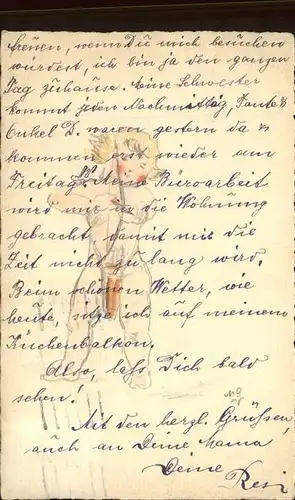 freuen, wenn Du mich besuchen
würdest, ich bin ja den ganzen
Tag zuhause. Eine Schwester
kommt jeden Nachmittag, Tante &
Onkel D. waren gestern da &
kommen erst wieder am
Freitag. Meine Büroarbeit
wird mir in die Wohnung
gebracht, damit mir die
Zeit nicht zu lang wird.
Beim schönen Wetter, wie
heute, sitze ich auf meinem
Küchenbalkon.
Also, lass Dich bald
sehen!
Mit den herzl. Grüßen,
auch an Deine Mama
Deine
Resi